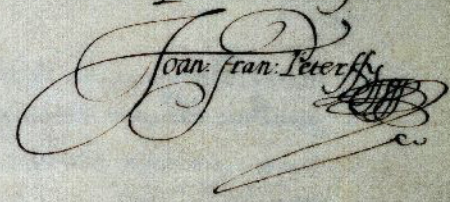 Joan: fran: Peterffy